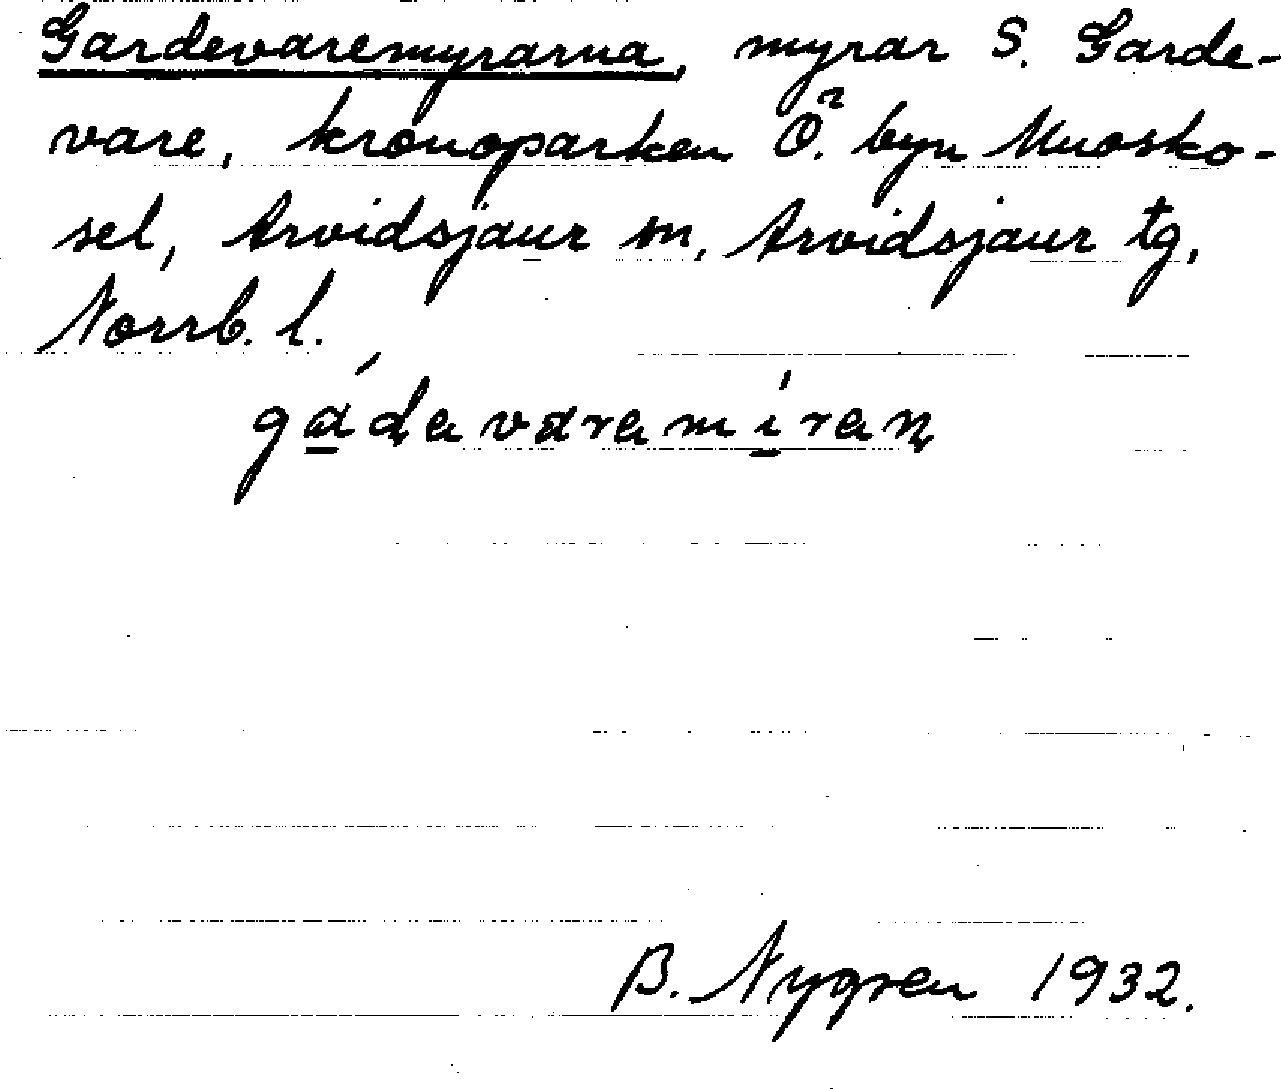 Gardevaremyrarna, myrar S. Garde-
vare, kronoparken Ö. byn Muosko-
sel, Arvidsjaur sn, Arvidsjaur tg,
Norrb. l.
gádavaramíran
B. Nygren 1932.